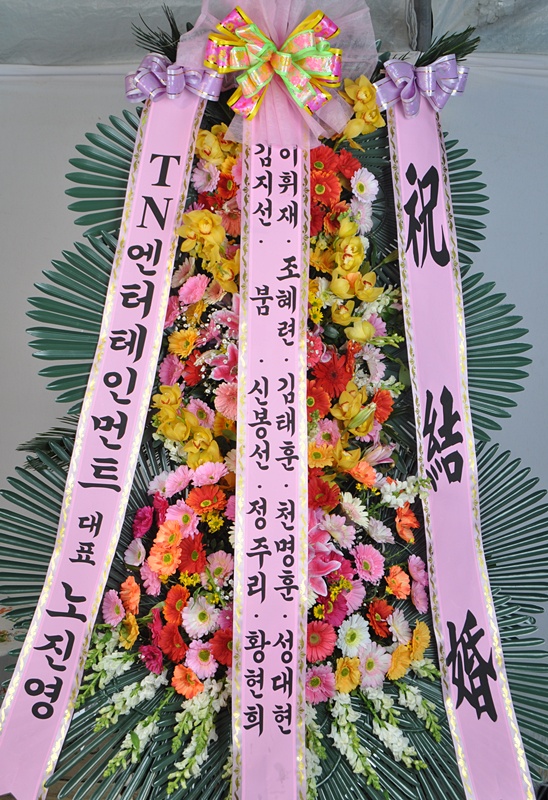 祝 結 婚
이휘재 · 조혜련 · 김태훈 · 천명훈 · 성대현
김지선 · 붐 · 신봉선 · 정주리 · 황현희
TN엔터테인먼트 대표 노진영